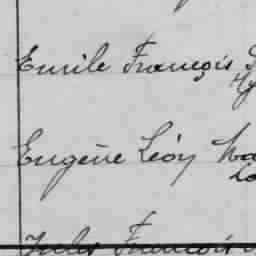 Emile François
Eugène Léon
Jules François